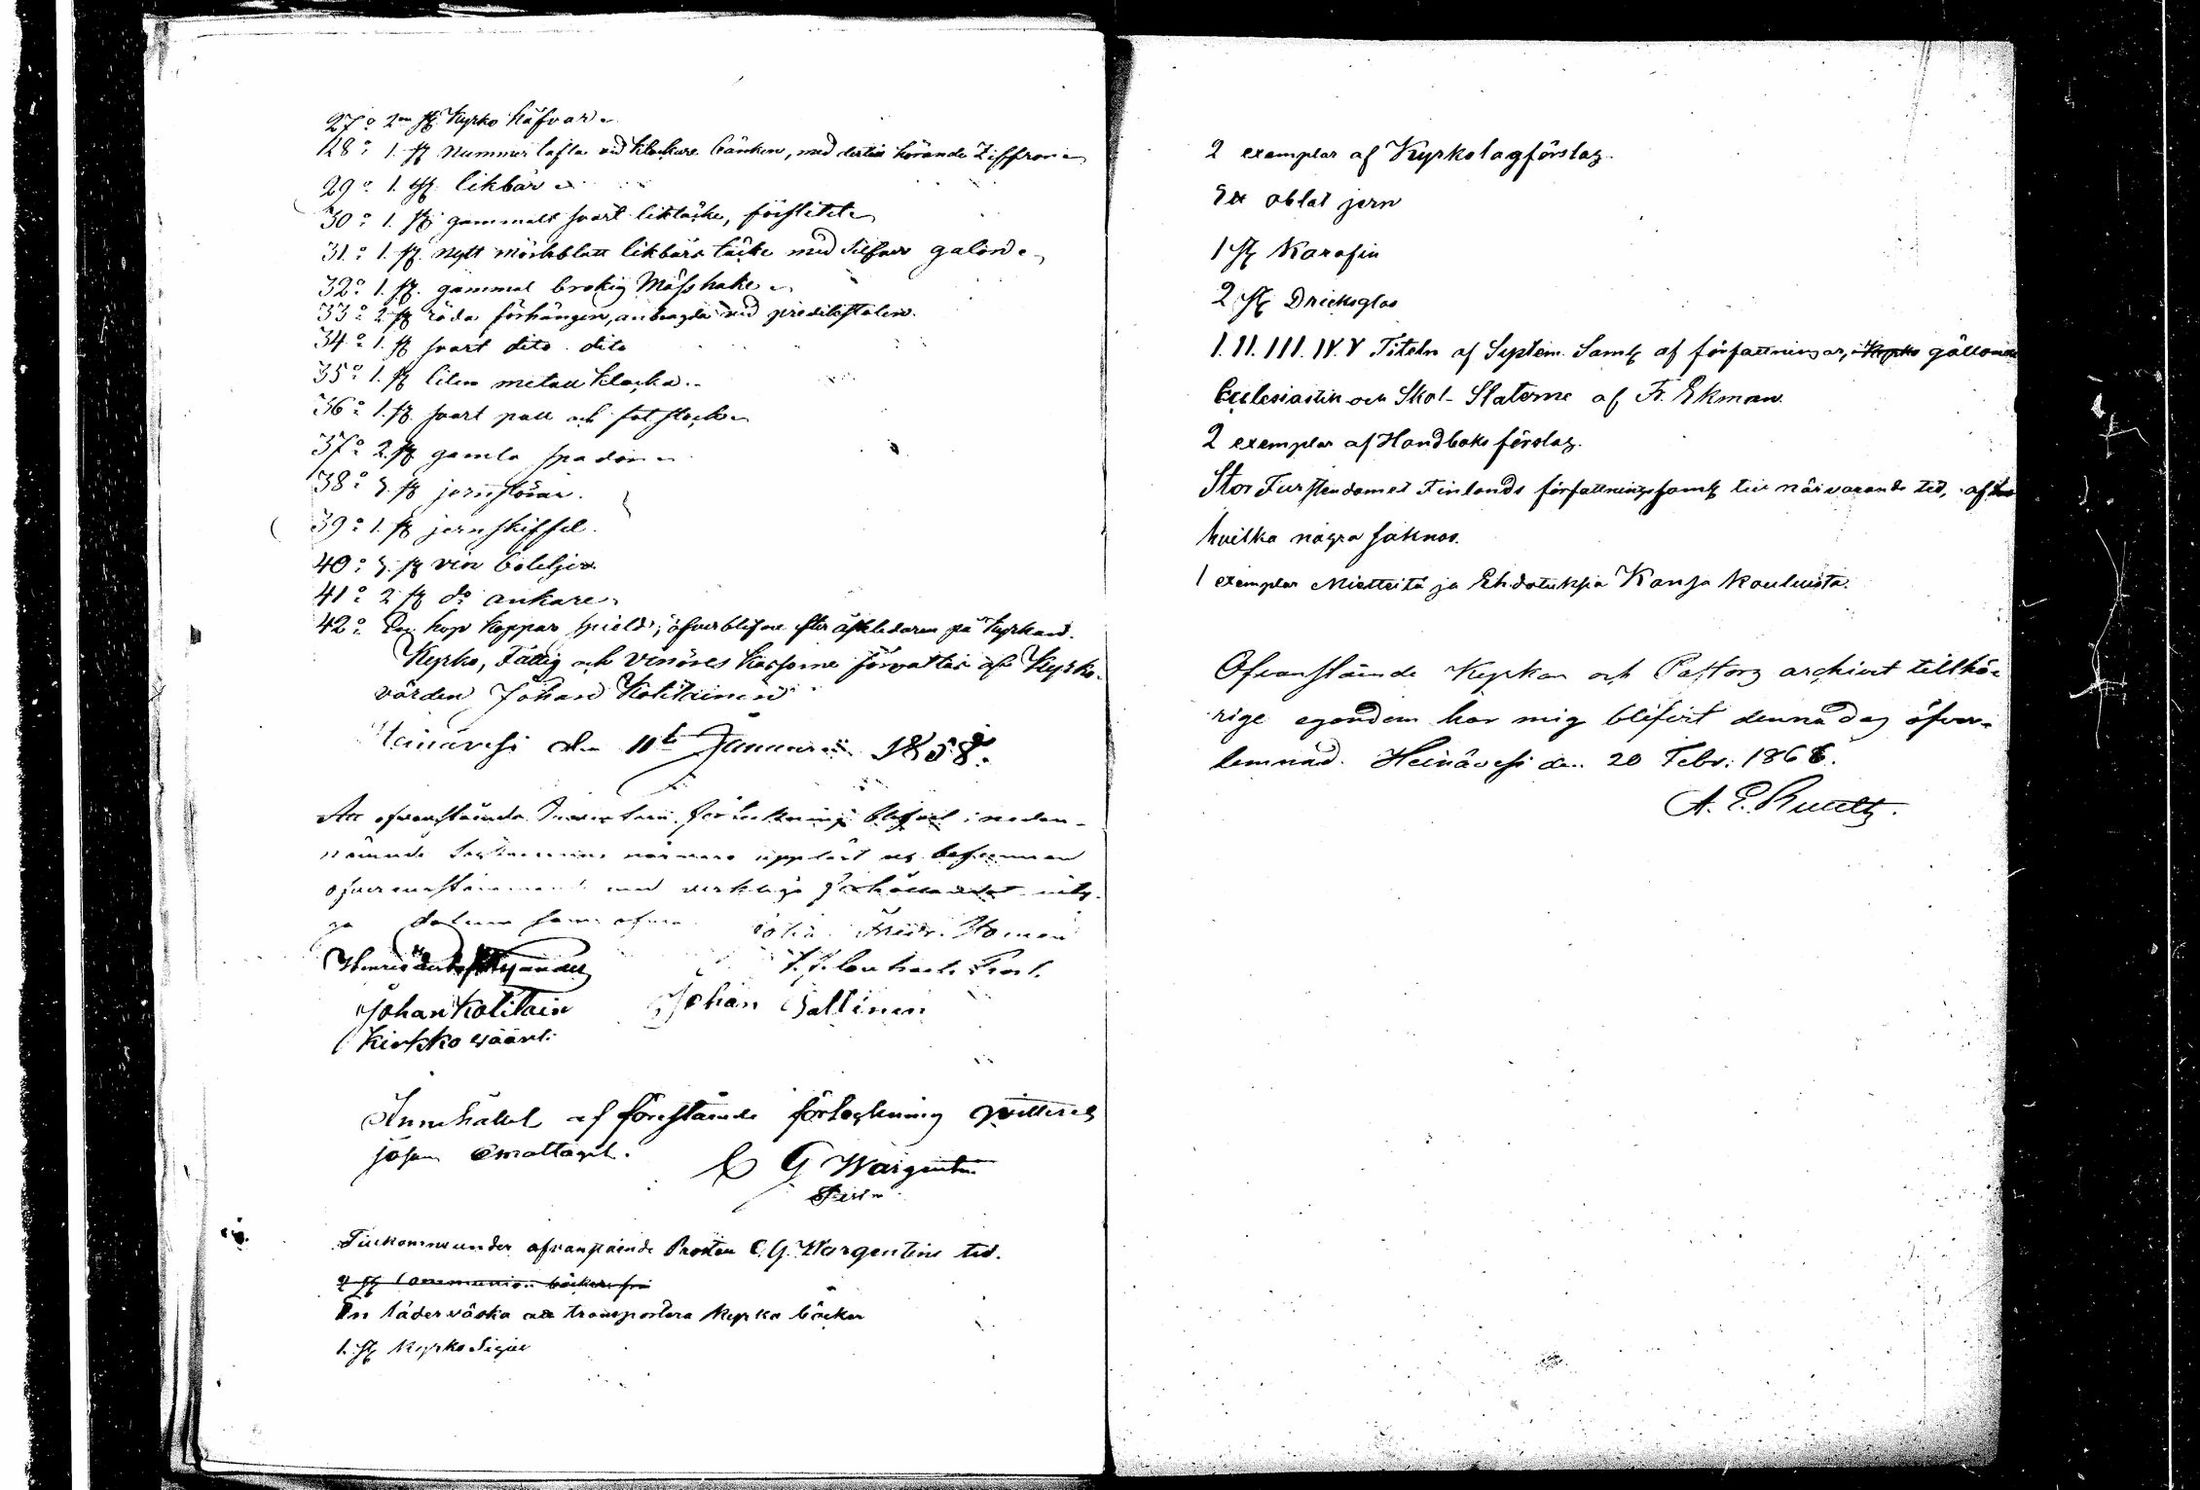 27:o 2ne st Kyrko håfvar
28:o 1. st Nummer tafla vid klockare bänken, med dertill hörande Ziffror
29:o 1. st likbår
30:o 1. st gammalt svart liktäcke, förslitet
31:o 1. st nytt mörkblatt likbårs täcke med Silfver galoner
32:o 1. st. gammal brokig Mässhake
33:o 2 st röda förhängen, anbragda vid predikstolen.
34:o 1. st svart dito dito
35:o 1. st liten metall klocka
36:o 1. st svart pall och fotstock
37:o 2. st gamla spadar
38:o 3. st jernstörar.
39:o 1. st jernskiffel.
40:o 3. st vin boteljer
41:o 2 st d:o ankare
42:o En hop koppar, öfverblifne efter åskledaren på kyrkan.
Kyrko, Fattig och Vinöres kassorne förvaltas af Kyrko-
värden Johan Kolitainen
Heinävesi den 11te Januari 1858.
Att ofvanstående förteckning blifvit i nedan-
nämnde närmare uppläst och befunnen
öfverensstämmande med verkliga förhållandet inty-
ga datum som ofvan. Homén
Johan Kolitain Johan Sallinen
Kirkko väärti
Innehållet af förestående förteckning qvitteras
såsom emottaget. C G Wargentin
Tillkommer under ofvanstående Prosten C. G. Wargentins tid.
2 st Communion böcker
En läder väska att transportera Kyrko böcker
1. st Kyrko Sigill
2 exemplar af Kyrkolagförslag.
Ett oblat jern
1 st Karafin
2 st Dricksglas
I. II. III. IV. V Titeln af System. Saml af författningar, Kyrko gällande
Ecclesiastik och Skol-Staterne af Fr. Ekman.
2 exemplar af Handboks förslag.
Stor Furstendömet Finlands författningssaml till närvarande tid, af
hvilka några saknas.
1 exemplar Mietteitä ja Ehdotuksia Kansa kouluista.
Ofvanstående Kyrkan och Pastors archivet tillhö-
rige egendom har mig blifvit denna dag öfver-
lemnad. Heinävesi den 20 Febr. 1866.